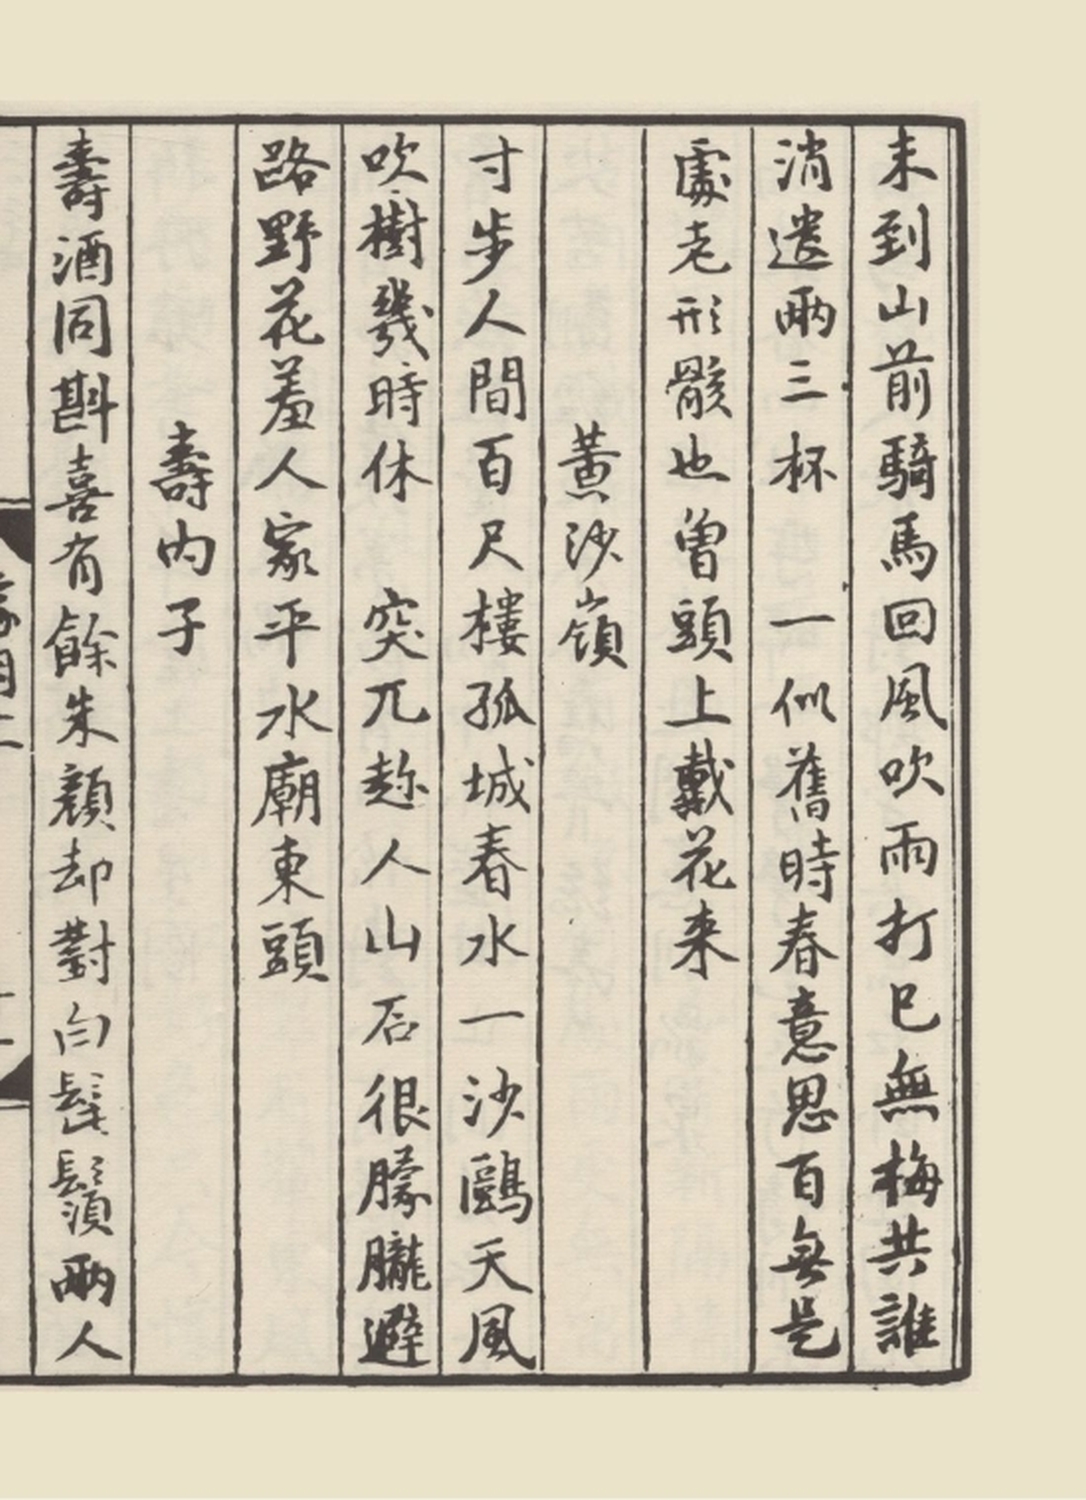 未到山前騎馬回風吹雨打已無梅共誰
消遣兩三杯　一似舊時春意思百無是
處老形骸也曾頭上戴花來
黄沙嶺
寸步人間百尺樓孤城春水一沙鷗天風
吹樹幾時休　突兀趂人山石很朦朧避
路野花羞人家平水廟東頭
壽内子
壽酒同斟喜有餘朱顔却對白髭鬚兩人